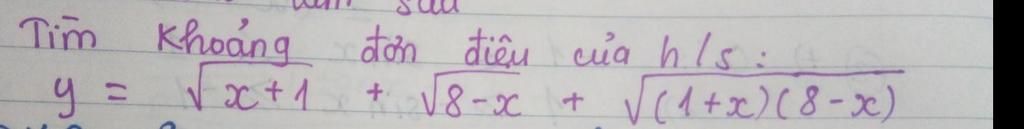 Tìm khoảng đơn điệu của h/s:
y = √x+1 + √8-x + √(1+x)(8-x)